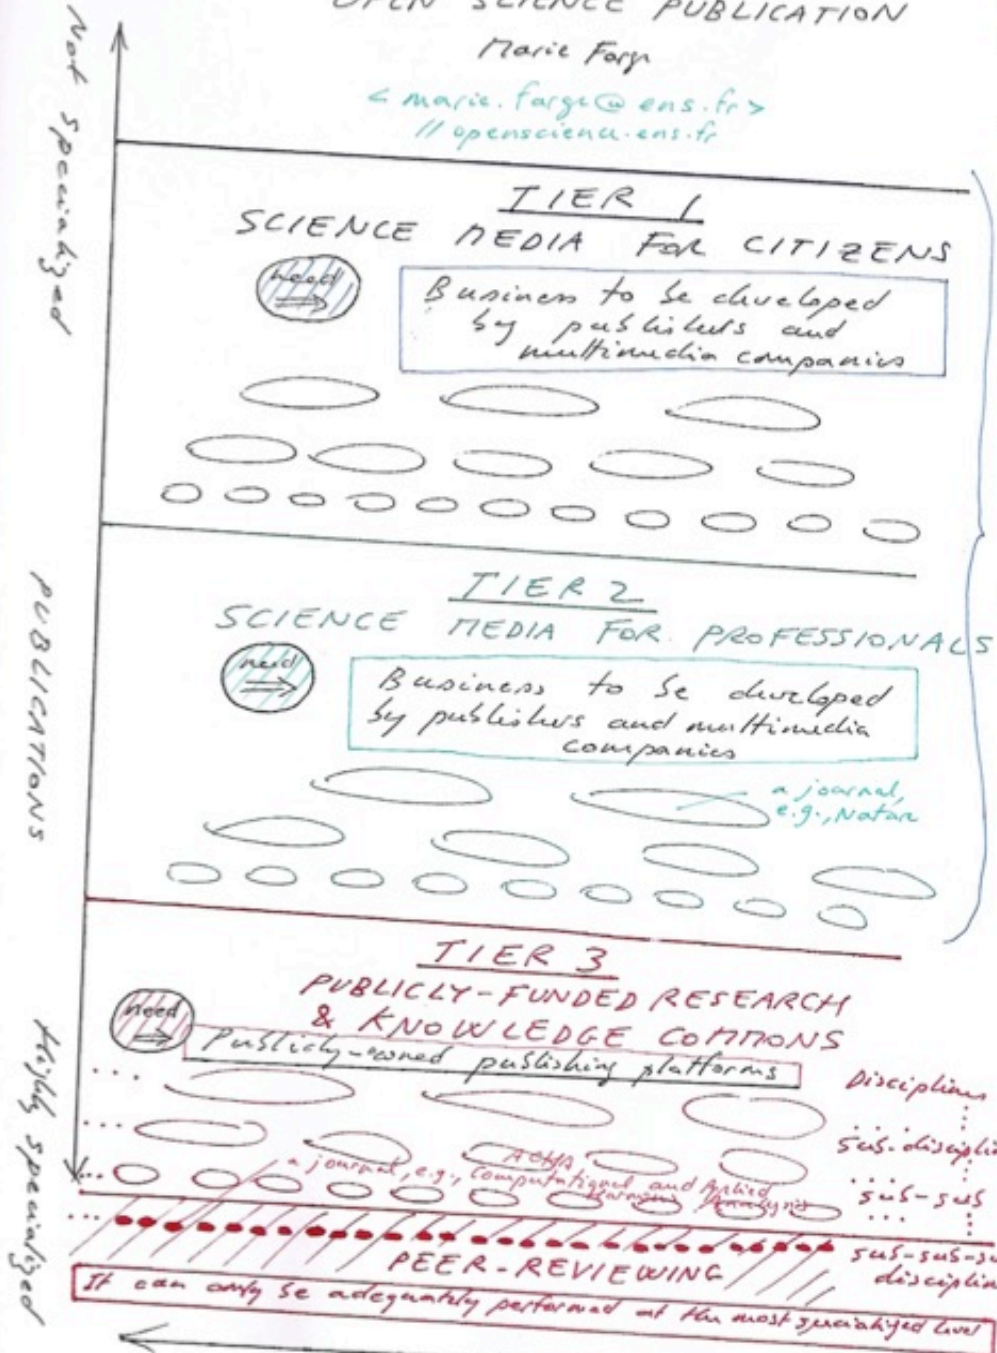 OPEN SCIENCE PUBLICATION
Marie Farge
< marie.farge@ens.fr >
// openscience.ens.fr
Not specialized
TIER 1
SCIENCE MEDIA FOR CITIZENS
need
Business to be developed
by publishers and
multimedia companies
PUBLICATIONS
TIER 2
SCIENCE MEDIA FOR PROFESSIONALS
need
Business to be developed
by publishers and multimedia
companies
a journal,
e.g., Nature
Highly specialized
TIER 3
PUBLICLY-FUNDED RESEARCH
& KNOWLEDGE COMMONS
need
Publicly-owned publishing platforms
Disciplines
sub-discipli
ACHA
a journal, e.g., Computational and Applied
Harmonic Analysis
sub-sub
sub-sub-su
disciplin
PEER-REVIEWING
It can only be adequately performed at the most specialized level